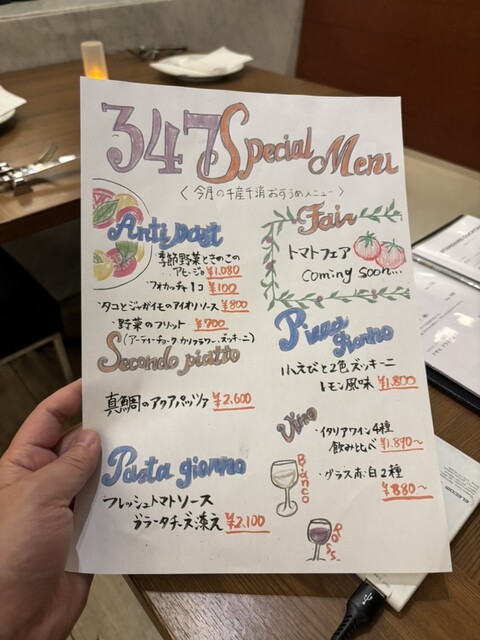 347 Special Menu
〈今月の千産千消おすすめメニュー〉
Antipast
・季節野菜ときのこの
アヒージョ ¥1,080
・フォカッチャ1コ ¥100
・タコとジャガイモのアイオリソース ¥800
・野菜のフリット ¥700
(アーティーチョーク・カリフラワー・ズッキーニ)
Secondo piatto
真鯛のアクアパッツァ ¥2,600
Pasta giorno
フレッシュトマトソース
ブラータチーズ添え ¥2,100
Fair
トマトフェア
Coming soon...
Pizza
giorno
小えびと2色ズッキーニ
レモン風味 ¥1,800
Vino
・イタリアワイン4種
飲み比べ ¥1,890~
・グラス赤・白2種
¥880~
Bianco